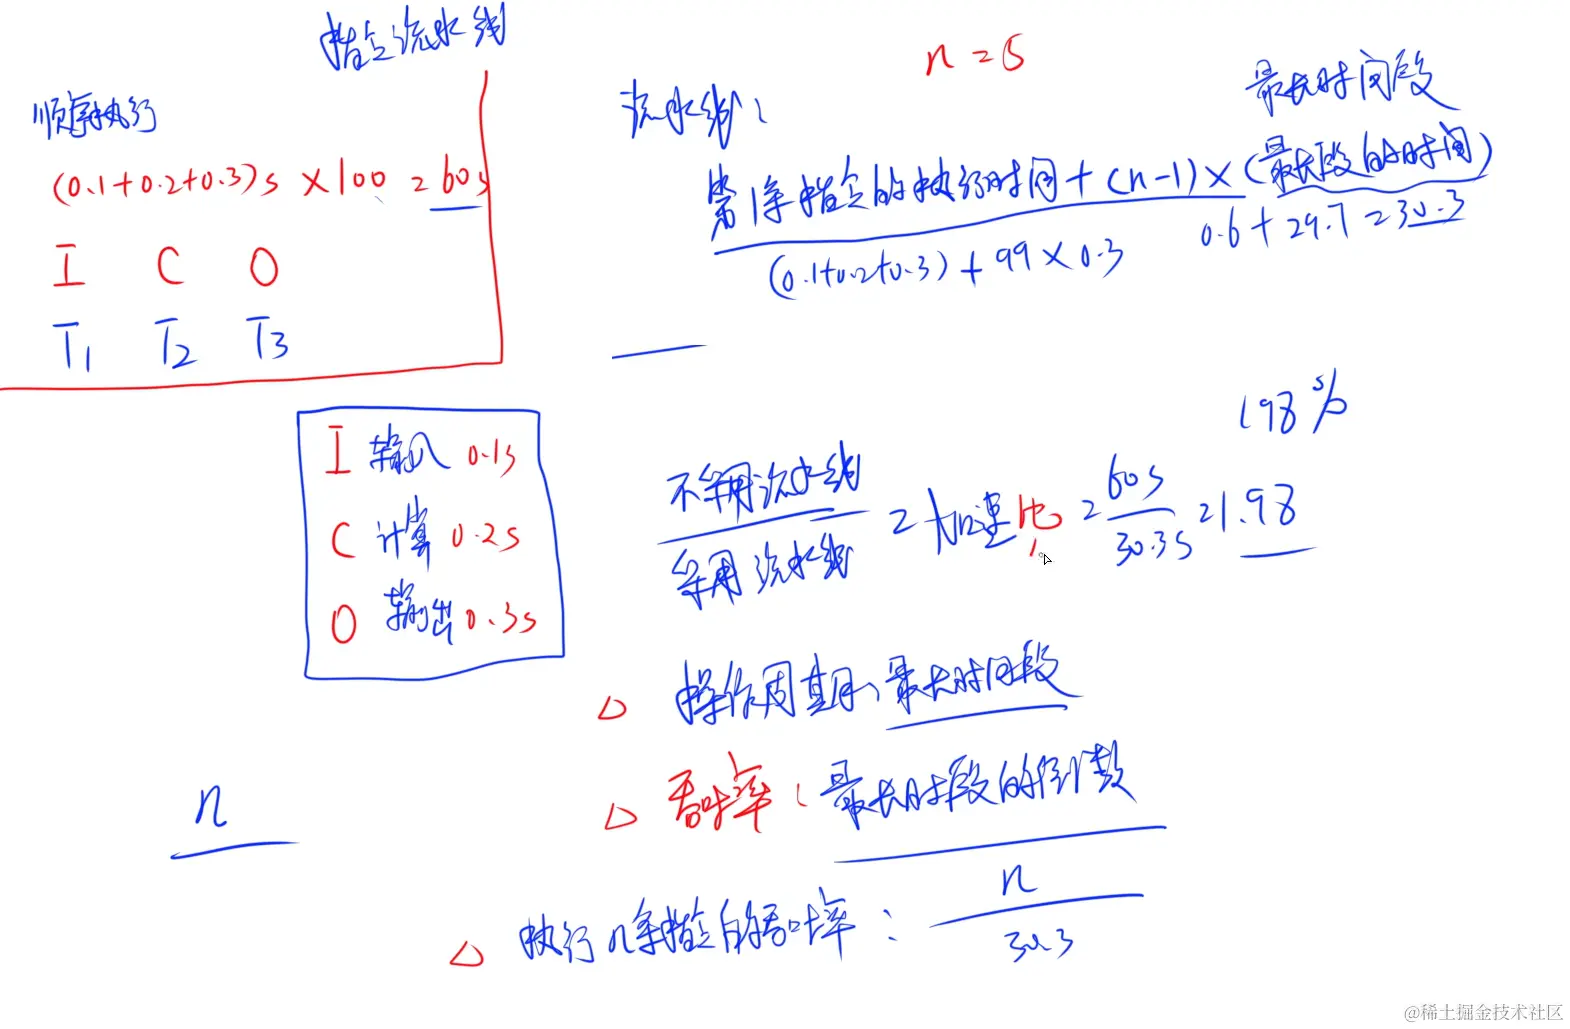 指令流水线
顺序执行
(0.1+0.2+0.3)s ×100 = 60s
I C O
T1 T2 T3
n = 5
流水线:
最长时间段
第1条指令的执行时间 + (n-1) × (最长段的时间)
(0.1+0.2+0.3) + 99 × 0.3
0.6 + 29.7 = 30.3
I 输入 0.1s
C 计算 0.2s
O 输出 0.3s
198%
不采用流水线
采用流水线
= 加速比 = 60s
30.3s
= 1.98
△ 操作周期: 最长时间段
△ 吞吐率: 最长时段的倒数
n
△ 执行n条指令的吞吐率: n
30.3
@稀土掘金技术社区